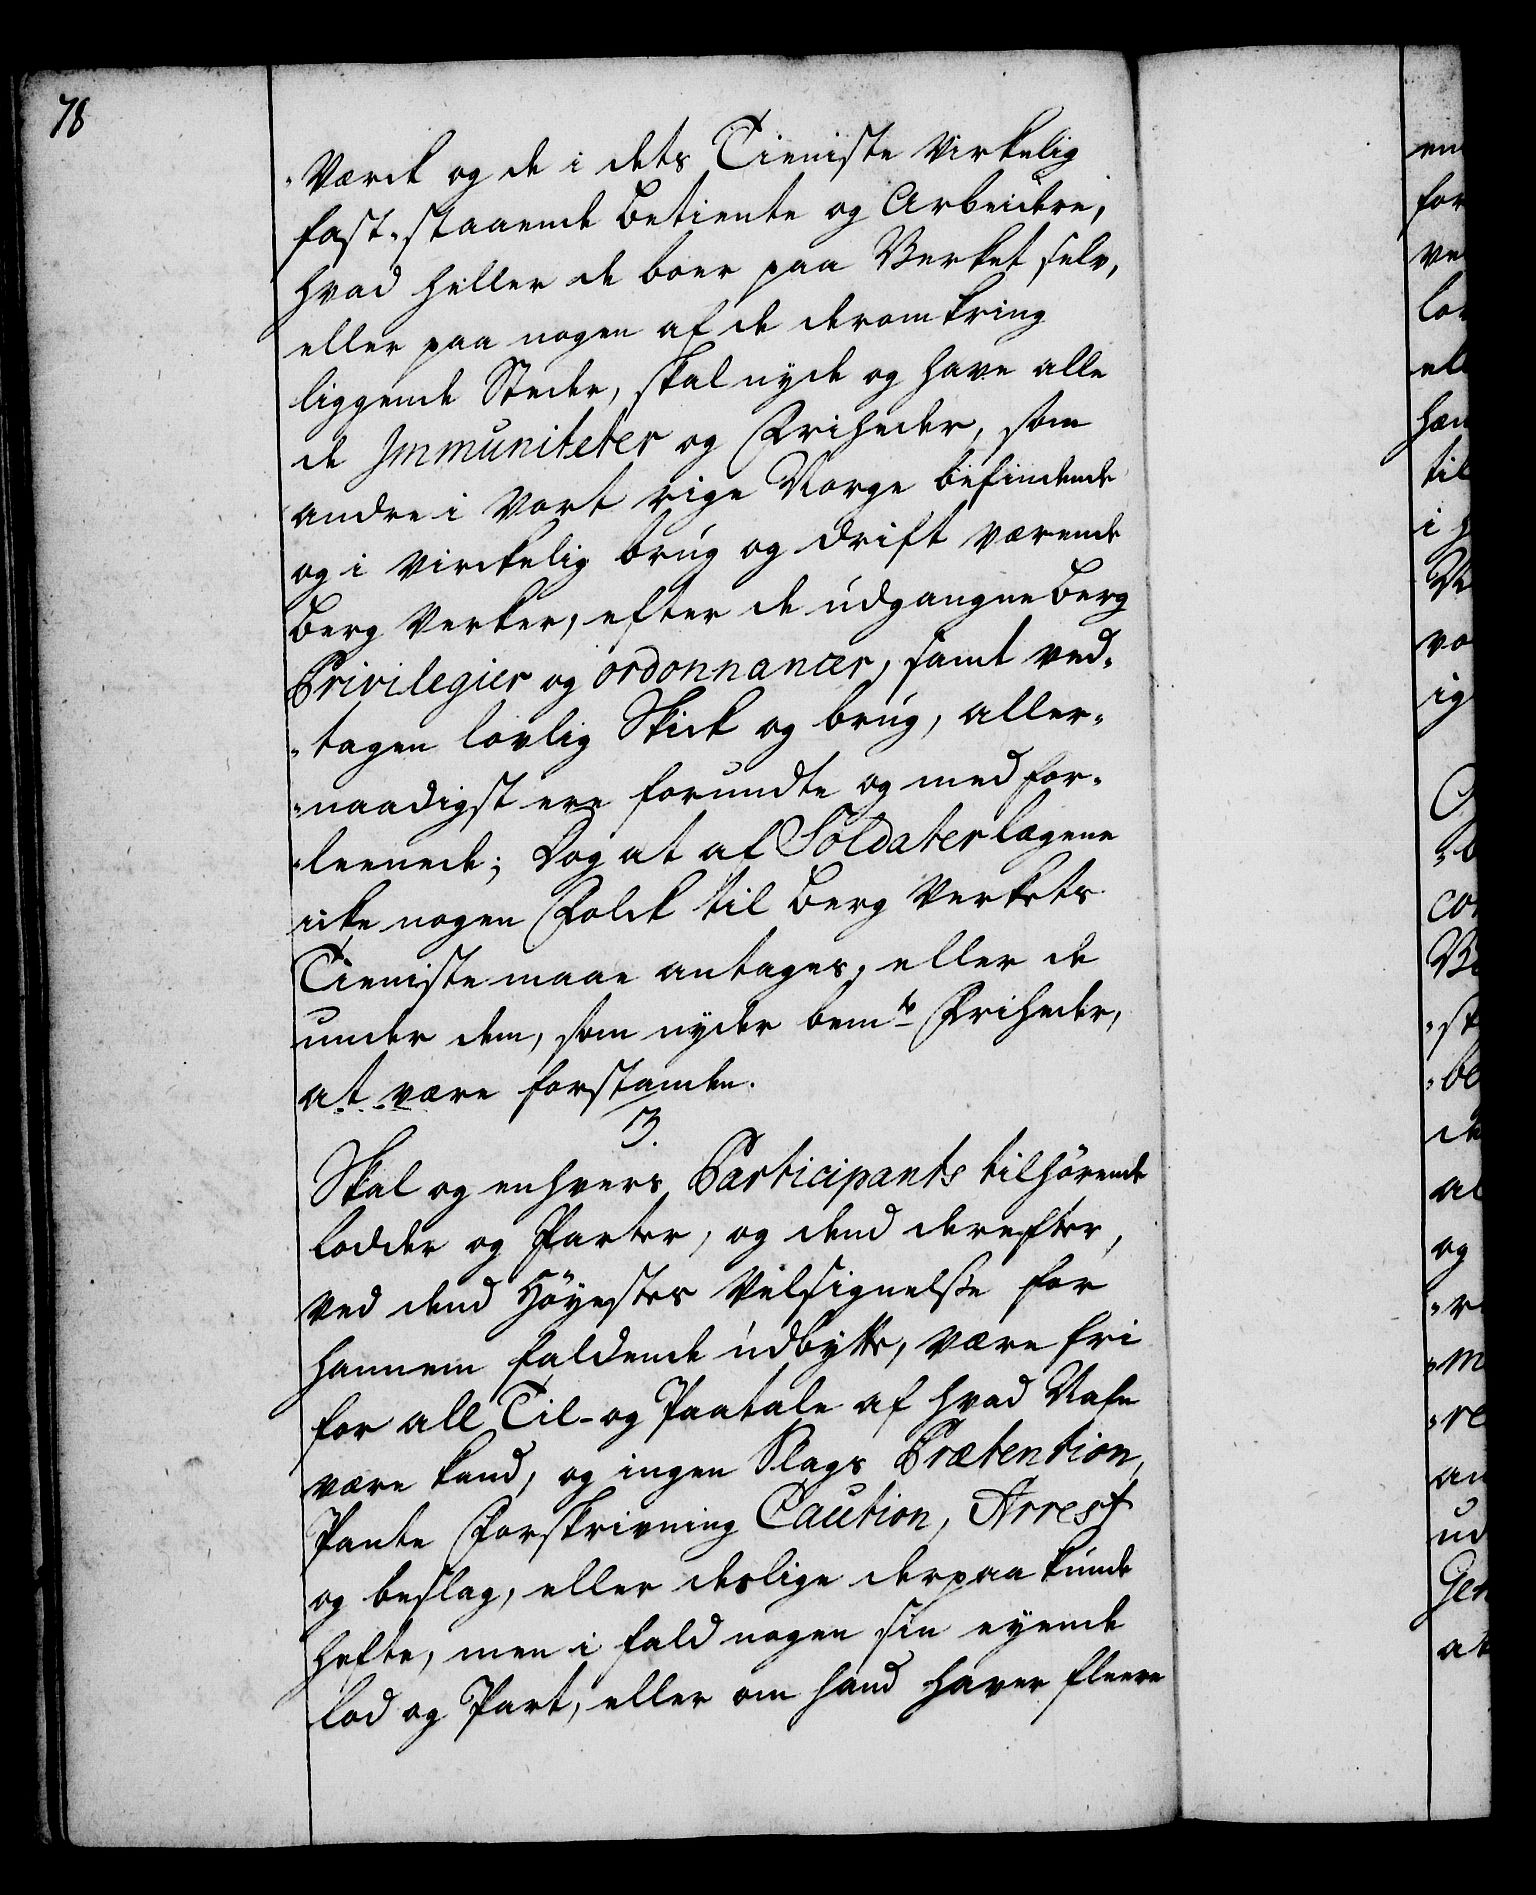 78
-Værck og de i dets Tieniste virkelig
fast-staaende betiente og Arbeidere,
hvad heller de boer paa Verket selv,
eller paa nogen af de deromkring
liggende Steder, skal nyde og have alle
de Immuniteter og Friheder, som
andre i Vort rige Norge befindende
og i virckelig brug og drift værende
Berg Verker, efter de udgangne Berg
Privilegier og ordonnancer, samt ved-
-tagen lovlig Skick og brug, aller-
-naadigst ere forundte og med for-
-leenede; Dog at af Soldater lægene
icke nogen Folck til Berg Verkets
Tieniste maae antages, eller de
under dem, som nyder bemte Friheder,
at være forstanden.
3.
Skal og enhvers Participants tilhørende
lodder og Parter, og dend derefter,
ved dend Høyestes Velsignelse for
hannem faldende udbytte, være fri
for all Til- og Paatale af hvad Nafn
være kand, og ingen Slags Prætention,
Pante Forskrivning Caution, Arrest
og beslag, eller deslige derpaa kunde
hefte, men i fald nogen sin eyende
Lod og Part, eller om hand haver fleere
en
for
ve
lov
ell
han
til
i
Ve
vo
ig
co
-st
-be
de
al
og
-m
-re
an
ud
Gen
at